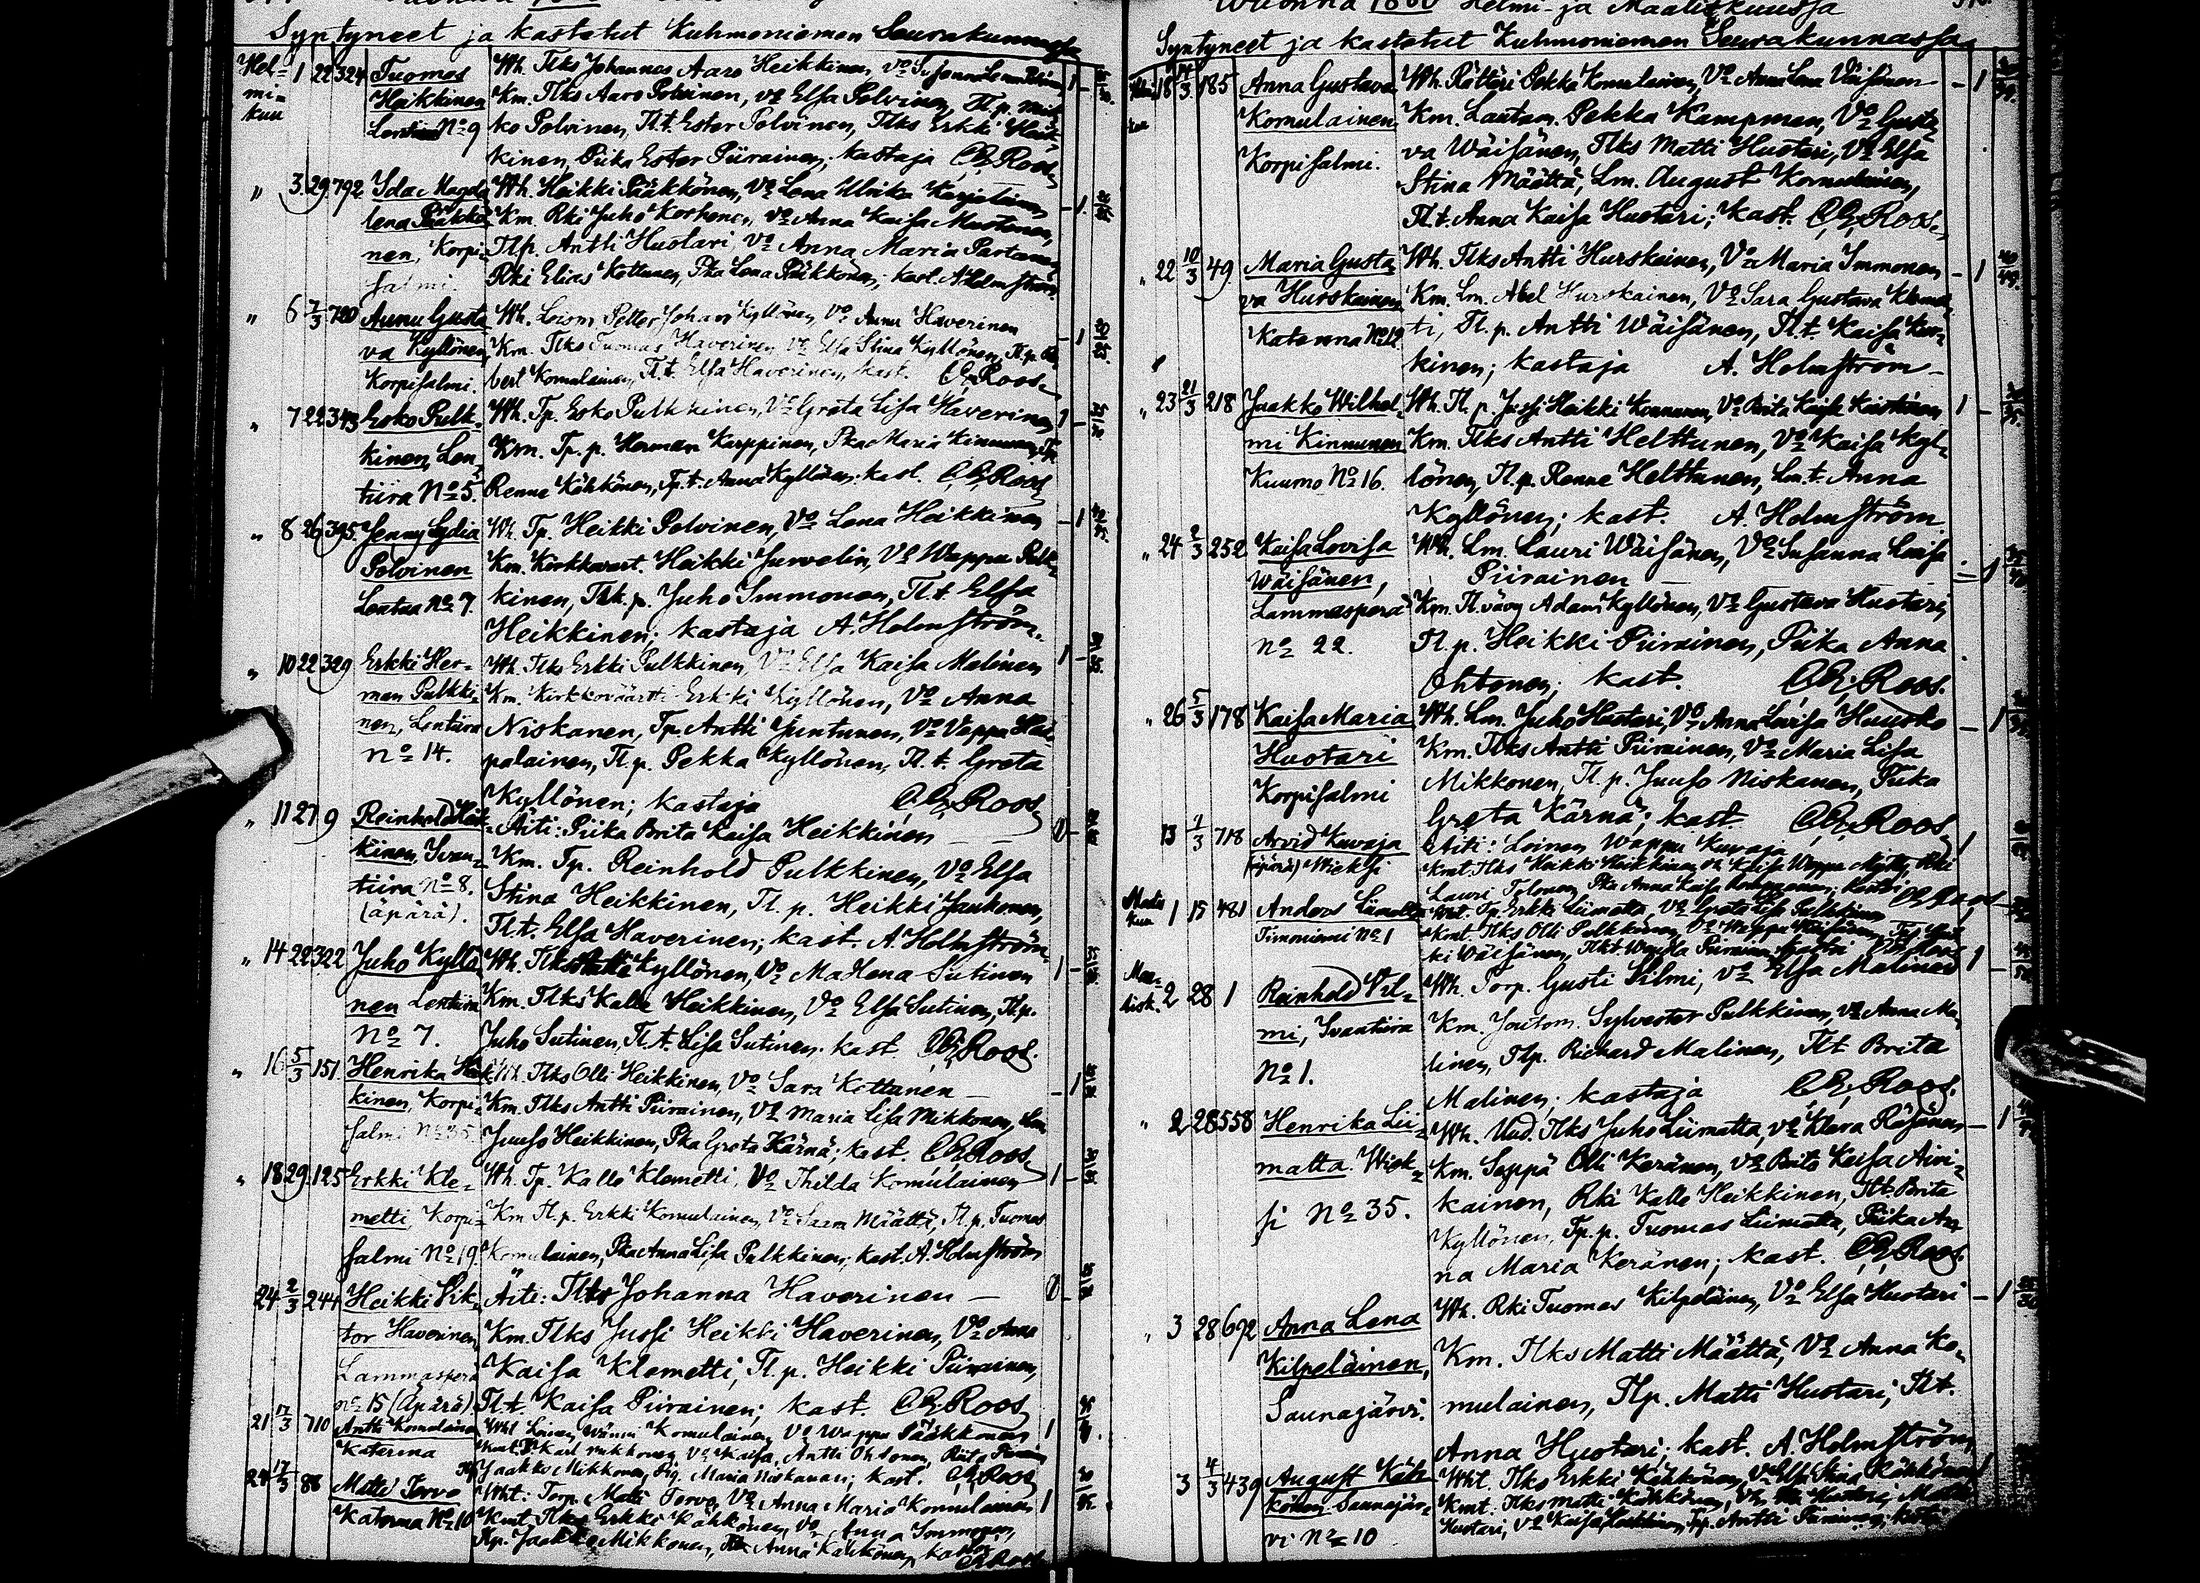 Syntyneet ja kastetut Kuhmoniemen Seurakunnassa
Hel-
mi-
kuu
1 22 324 Tuomas
Heikkinen
Lentiira No 9
Wh. Tlks Johannes Aaro Heikkinen, Vo
Km. Tlks Aaro Polvinen, Vo Elsa Polvinen, Tl. p. Mik-
ko Polvinen, Tl.t. Ester Polvinen, Tlks Erkki Heik-
kinen, Piika Ester Piirainen; kastaja C.E. Roos
" 3 29 792 Ida Magda-
lena Pääkkö-
nen, Korpi-
salmi.
Wh. Heikki Pääkkönen, Vo Lena Ulrika Karjalainen
Km. Rki Juho Korhonen, Vo Anna Kaisa Mustonen,
Tlp. Antti Huotari, Vo Anna Maria Partanen,
Rki Elias Kettunen, Pka Lena Pääkkönen; kast. A. Holmström
" 6 7/3 720 Anna Gusta-
va Kyllönen
Korpisalmi.
Wh. Loism Petter Johan Kyllönen, Vo Anna Haverinen
Km. Tlks Tuomas Haverinen, Vo Elsa Stina Kyllönen, Tl.p. Al-
bert Komulainen, Tl.t. Elsa Haverinen, kast. C.E. Roos
" 7 22 343 Esko Pulk-
kinen, Len-
tiira No 5.
Wh. Tp. Esko Pulkkinen, Vo Greta Lisa Haverinen
Km. Tp. p. Herman Karppinen, Pka Maria Kinnunen, Tp.
Renne Kähkönen, Tp.t. Anna Kyllönen; kast. C.E. Roos
" 8 26 395 Jenny Lydia
Polvinen
Lentua No 7.
Wh. Tp. Heikki Polvinen, Vo Lena Heikkinen
Km. Kirkkovart. Heikki Juvelin, Vo Wappu Pulk-
kinen, Tlk. p. Juho Immonen, Tl.t. Elsa
Heikkinen; kastaja A. Holmström.
" 10 22 329 Erkki Her-
man Pulkki-
nen, Lentiira
No 14.
Wh. Tlks Erkki Pulkkinen, Vo Elsa Kaisa Malinen
Km. Kirkkoväärtti Erkki Kyllönen, Vo Anna
Niskanen, Tp. Antti Juntunen, Vo Vappu Haa-
palainen, Tl. p. Pekka Kyllönen, Tl. t. Greta
Kyllönen; kastaja C.E. Roos
" 11 27 9 Reinhold Heik-
kinen, Ivan-
tiira No 8.
(äpärä).
Äiti: Piika Brita Kaisa Heikkinen
Km. Tp. Reinhold Pulkkinen, Vo Elsa
Stina Heikkinen, Tl. p. Heikki Jauhonen,
Tl.t. Elsa Haverinen; kast. A. Holmström
" 14 22 322 Juho Kyllö-
nen Lentiira
No 7.
Wh. Tlks Kyllönen, Vo Ma Hena Sutinen
Km. Tlks Kalle Heikkinen, Vo Elsa Sutinen, Tl.p.
Juho Sutinen, Tl. t. Lisa Sutinen. kast. C.E. Roos.
" 16 5/3 151. Henrika Heik-
kinen, Korpi-
salmi No 35.
Wh. Tlks Olli Heikkinen, Vo Sara Kettunen
Km. Tlks Antti Piirainen, Vo Maria Lisa Mikkonen, Lm
Juuso Heikkinen, Pka Greta Kärnä; kast. C.E. Roos
" 18 29 125 Erkki Kle-
metti, Korpi-
salmi No 19.
Wh. Tp. Kalle Klemetti, Vo Thilda Komulainen
Km Tl. p. Erkki Komulainen, Vo Saara Määttä, Tl. p. Tuomas
Komulainen, Pka Anna Lisa Pulkkinen; kast. A. Holmström
24 2/3 244 Heikki Vik-
tor Haverinen
Lammasperä
No 15 (Äpärä).
Äiti: Tlts Johanna Haverinen
Km. Tlks Jussi Heikki Haverinen, Vo Anna
Kaisa Klemetti, Tl. p. Heikki Piirainen,
Tl.t. Kaisa Piirainen; kast. C.E. Roos
21 17/3 710 Antti Komulainen
Katerma
Wht Loinen Komulainen, Vo Wappu Pääkkönen
Jaakko Mikkonen, Maria Niskanen; kast. C.E. Roos
24 17/3 88 Matti Tervo
Katerma No 10
Wht: Torp. Matti Tervo, Vo Anna Maria Komulainen
Kmt. Tlks Erkki Kähkönen, Vo Anna Immonen,
Tlp. Jaakko Mikkonen, Anna Kähkönen, kastoi C.E. Roos
Wuonna 1880 Helmi- ja Maaliskuussa
Syntyneet ja kastetut Kuhmoniemen Seurakunnassa
18 14/3 185 Anna Gustava
Komulainen
Korpisalmi.
Wh. Rättäri Pekka Komulainen, Vo Anna Lena Väisänen
Km. Lautam. Pekka Kampman, Vo Gusta-
va Wäisänen, Tlks Matti Huotari, Vo Elsa
Stina Määttä, Lm. August Komulainen,
Tl.t. Anna Kaisa Huotari; kast. C.E. Roos.
" 22 10/3 49. Maria Gusta-
va Hurskainen
Katerma No 12.
Wh. Tlks Antti Hurskainen, Vo Maria Immonen
Km. Lm. Abel Hurskainen, Vo Sara Gustava Kleme-
ti, Tl. p. Antti Wäisänen, Tl.t. Kaisa Kor-
kinen; kastaja A. Holmström
" 23 21/3 218 Jaakko Wilhel-
mi Kinnunen
Kuumo No 16.
Wh. Tl. p. Jussi Heikki Kinnunen, Vo Brita Kaisa
Km. Tlks Antti Helttunen, Vo Kaisa Kyl-
lönen, Tl. p. Renne Helttunen, Lm. t. Anna
Kyllönen; kast. A. Holmström
" 24 2/3 252 Kaisa Lovisa
Wäisänen,
Lammasperä
No 22.
Wh. Lm. Lauri Wäisänen, Vo Susanna Lovisa
Piirainen
Km. Tl. vävy Adam Kyllönen, Vo Gustava Huotari,
Tl. p. Heikki Piirainen, Piika Anna
Ohtonen; kast. C.E. Roos.
" 26 5/3 178 Kaisa Maria
Huotari
Korpisalmi
Wh. Lm. Juho Huotari, Vo Anna Lovisa Huusko
Km. Tlks Antti Piirainen, Vo Maria Lisa
Mikkonen, Tl. p. Juuso Niskanen, Piika
Greta Kärnä; kast. C.E. Roos
13 1/3 718 Arvid Kuvaja
(äpärä) Wieksi
Äiti: Loinen Wappu Kuvaja
Kmt. Tlks Heikki Heikkinen
Lauri Tolonen, Pka Anna Kaisa
Malis
kuu 1 15 481 Anders Liimatta
Timoniemi No 1
Wht. Tp. Erkki Liimatta, Vo Greta Lisa Pulkkinen
Kmt Tlks Olli Pulkkinen, Vo Wappu
ki Wäisänen, Tlkt Piirainen, kastoi C.E. Roos
Maa-
lisk. 2 28 1 Reinhold Vil-
mi, Ivantiira
No 1.
Wh. Torp. Gusti Vilmi, Vo Elsa Malinen
Km. Joutom. Sylvester Pulkkinen, Vo Anna Ma-
linen, Tlp. Richard Malinen, Tl.t Brita
Malinen; kastaja C.E. Roos.
" 2 28 558 Henrika Lii-
matta. Wiek-
si No 35.
Wh. Uud. Tlks Juho Liimatta, Vo Klara Räsänen
Km. Seppä Olli Keränen, Vo Brita Kaisa Aivi-
kainen, Rki Kalle Heikkinen, Tl.t. Brita
Kyllönen, Tp. p. Tuomas Liimatta, Piika An-
na Maria Keränen; kast. C.E. Roos.
" 3 28 692 Anna Lena
Kilpeläinen,
Saunajärvi.
Wh. Rki Tuomas Kilpeläinen, Vo Elsa Huotari
Km. Tlks Matti Määttä, Vo Anna Ko-
mulainen, Tlp. Matti Huotari, Tl.t.
Anna Huotari; kast. A. Holmström
3 4/3 439 August Käh-
könen, Saunajär-
vi No 10
Wht. Tlks Erkki Kähkönen, Vo Elsa Stina Kähkönen
Kmt: Tlks Matti Kähkönen, Vo Huotari, Matti
Huotari, Vo Kaisa Heikkinen, Tp. Antti Piirainen; kastoi